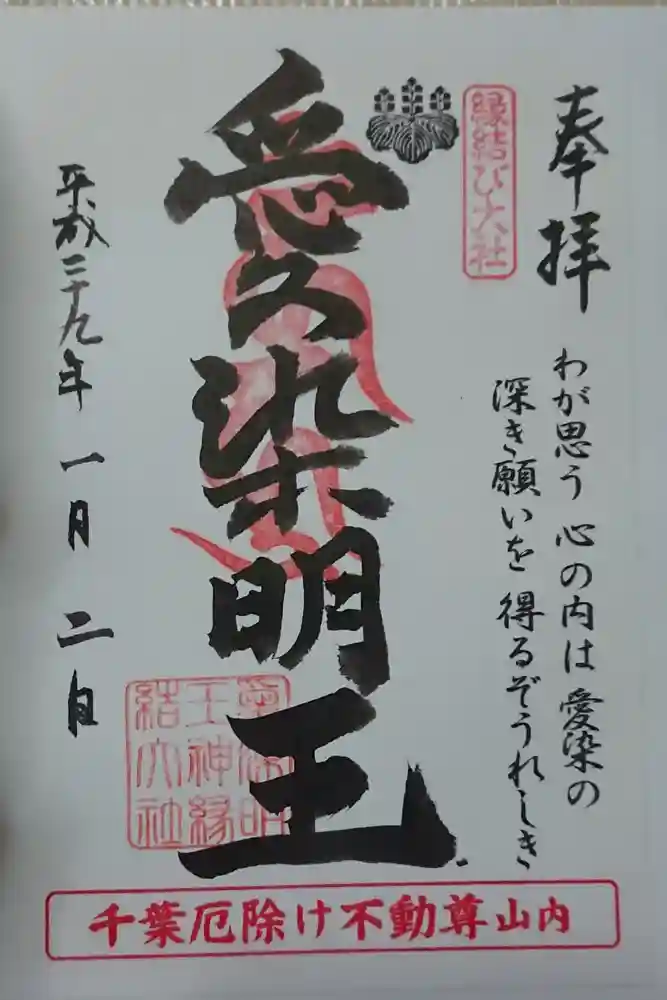 奉拝
縁結び大社
わが思う 心の内は 愛染の
深き願いを 得るぞうれしき
愛染明王
平成二十九年 一月 二日
愛染明
王神縁
結大社
千葉厄除け不動尊山内